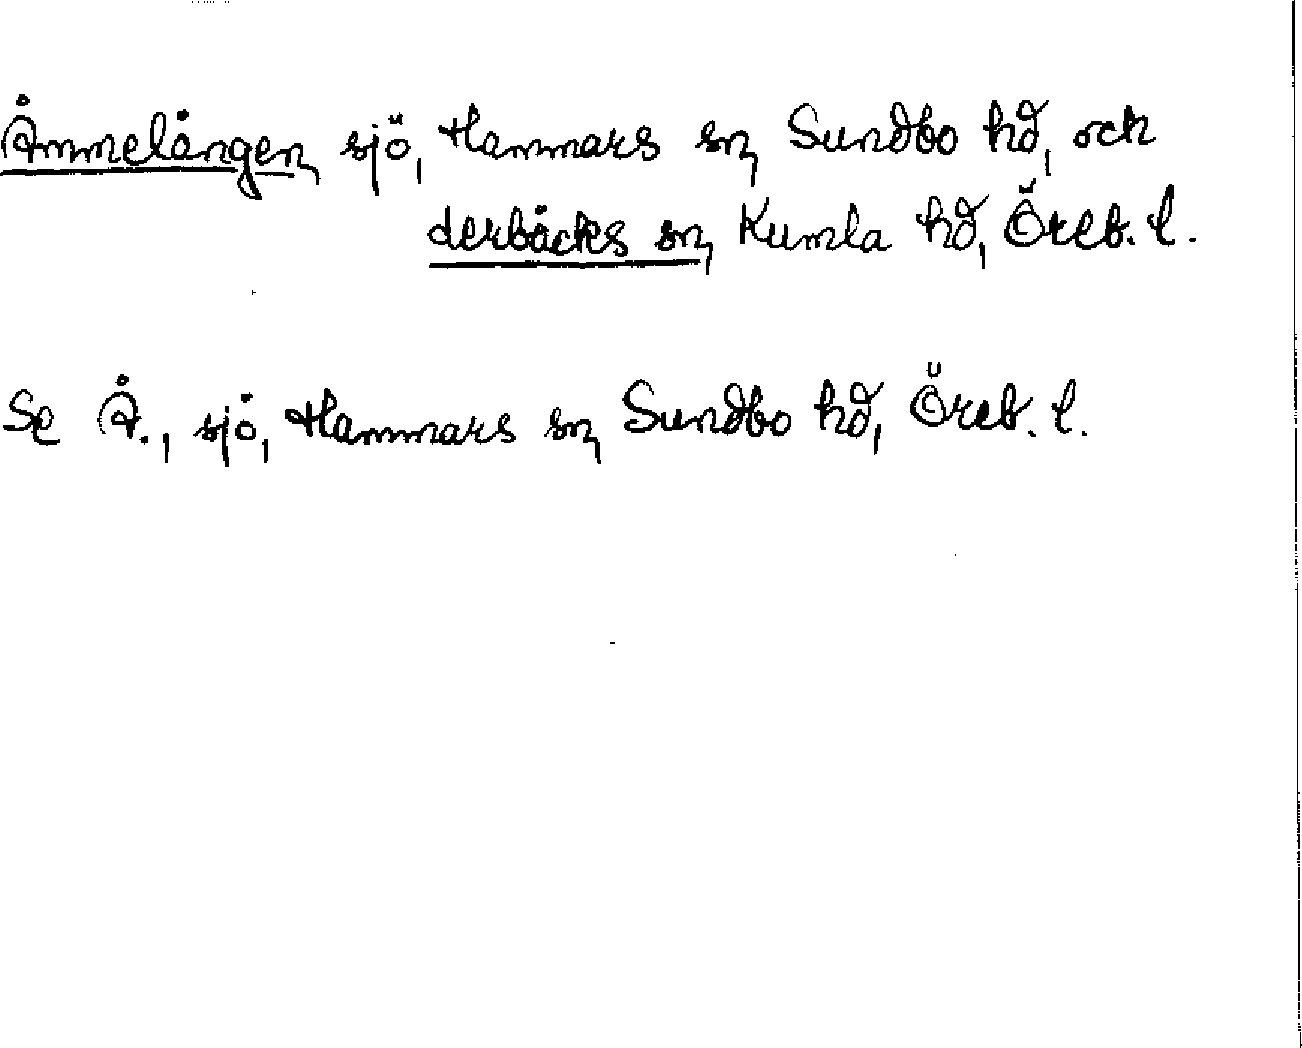 Åmmelången, sjö, Hammars sn, Sundbo hd, och
derbäcks sn, Kumla hd, Öreb. l.
Se Å., sjö, Hammars sn, Sundbo hd, Öreb. l.